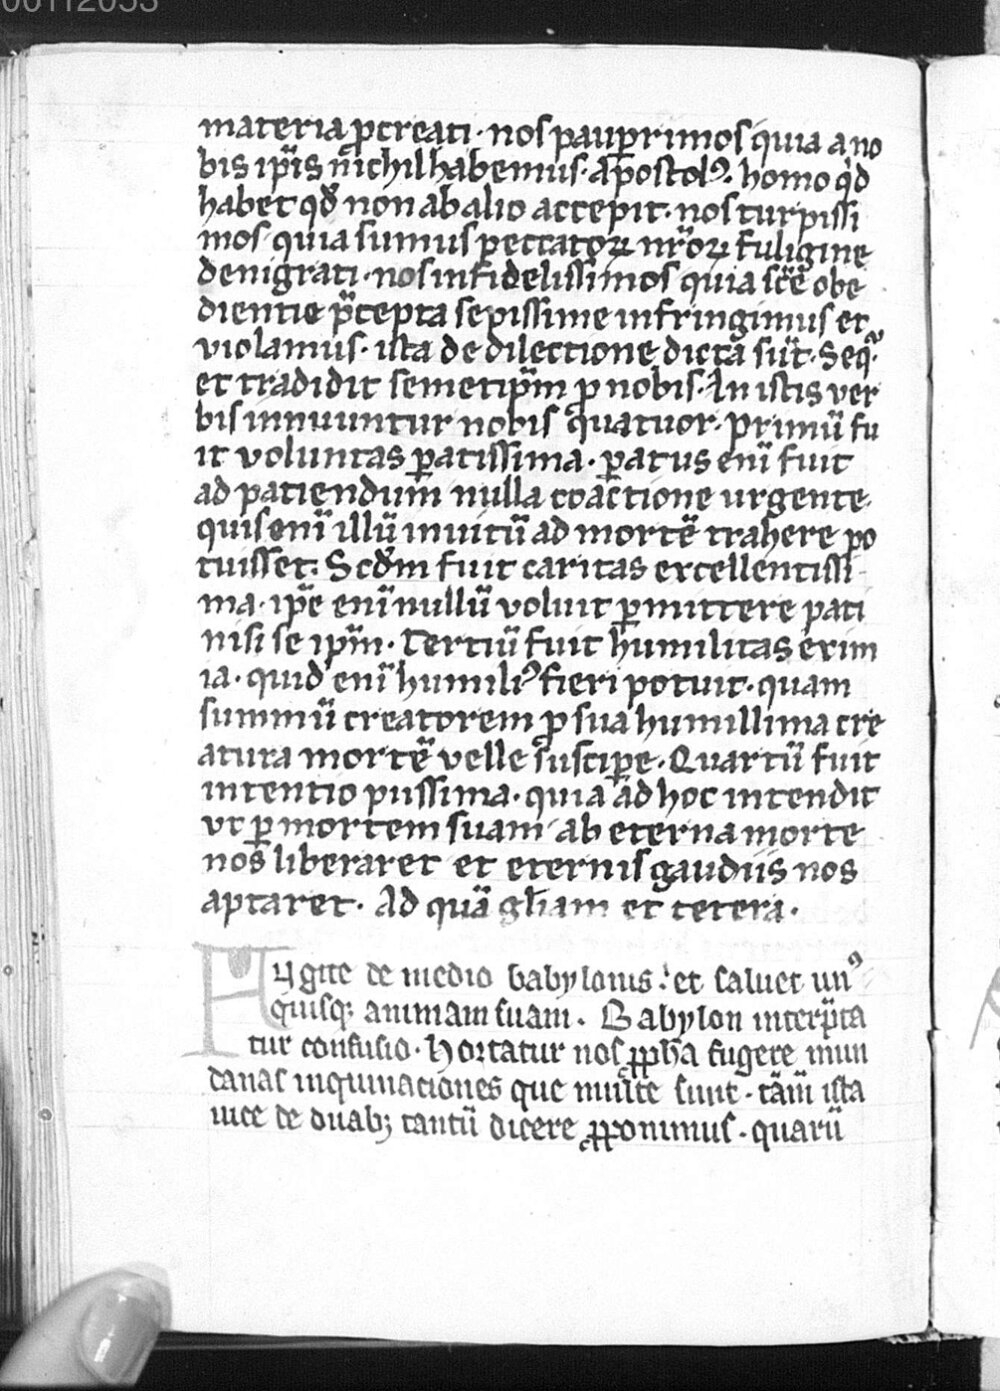 00112053
materia ꝓcreati · nos paup̲rimos quia a no
bis ip̅is nichil habemus · Apostolꝰ. homo qͥd
habet qd̓ non ab alio accepit · nos turpissi
mos quia sumus peccatoꝝ nr̅oꝝ fuligine
denigrati · nos infidelissimos quia sc̅e obe
dientie p̅cepta sepissime infringimus et
violamus · ista de dilectione dicta su̅t · Seqͣ.
et tradidit semetip̅m ꝓ nobis · In istis ver
bis innuuntur nobis quatuor · Primu̅ fu
it voluntas ꝑatissima · ꝑatus eni̅ fuit
ad patiendum nulla coactione urgente
quis eni̅ illu̅ inuitu̅ ad morte̅ trahere po
tuisset. Scd̓m fuit caritas excellentissi
ma · ip̅e eni̅ nullu̅ voluit ꝑmittere pati
nisi se ip̅m · Tertiu̅ fuit humilitas exim
ia · quid eni̅ humiliꝰ fieri potuit · quam
summu̅ creatorem ꝓ sua humillima cre
atura morte̅ velle suscipe̅ · Quartu̅ fuit
intentio piissima · quia ad hoc intendit
vt ꝑ mortem suam ab eterna morte
nos liberaret et eternis gaudiis nos
aptaret · Ad qua̅ gl̅iam et cetera ·
Fugite de medio babylonis : et saluet unꝰ
quisqꝫ animam suam . Babylon interp̅ta
tur confusio · Hortatur nos ꝓph̅a fugere mun
danas inquinaciones que mul̅te sunt · ta̅m̅ ista
uice de duabꝫ tantu̅ dicere ꝓponimus · quaru̅